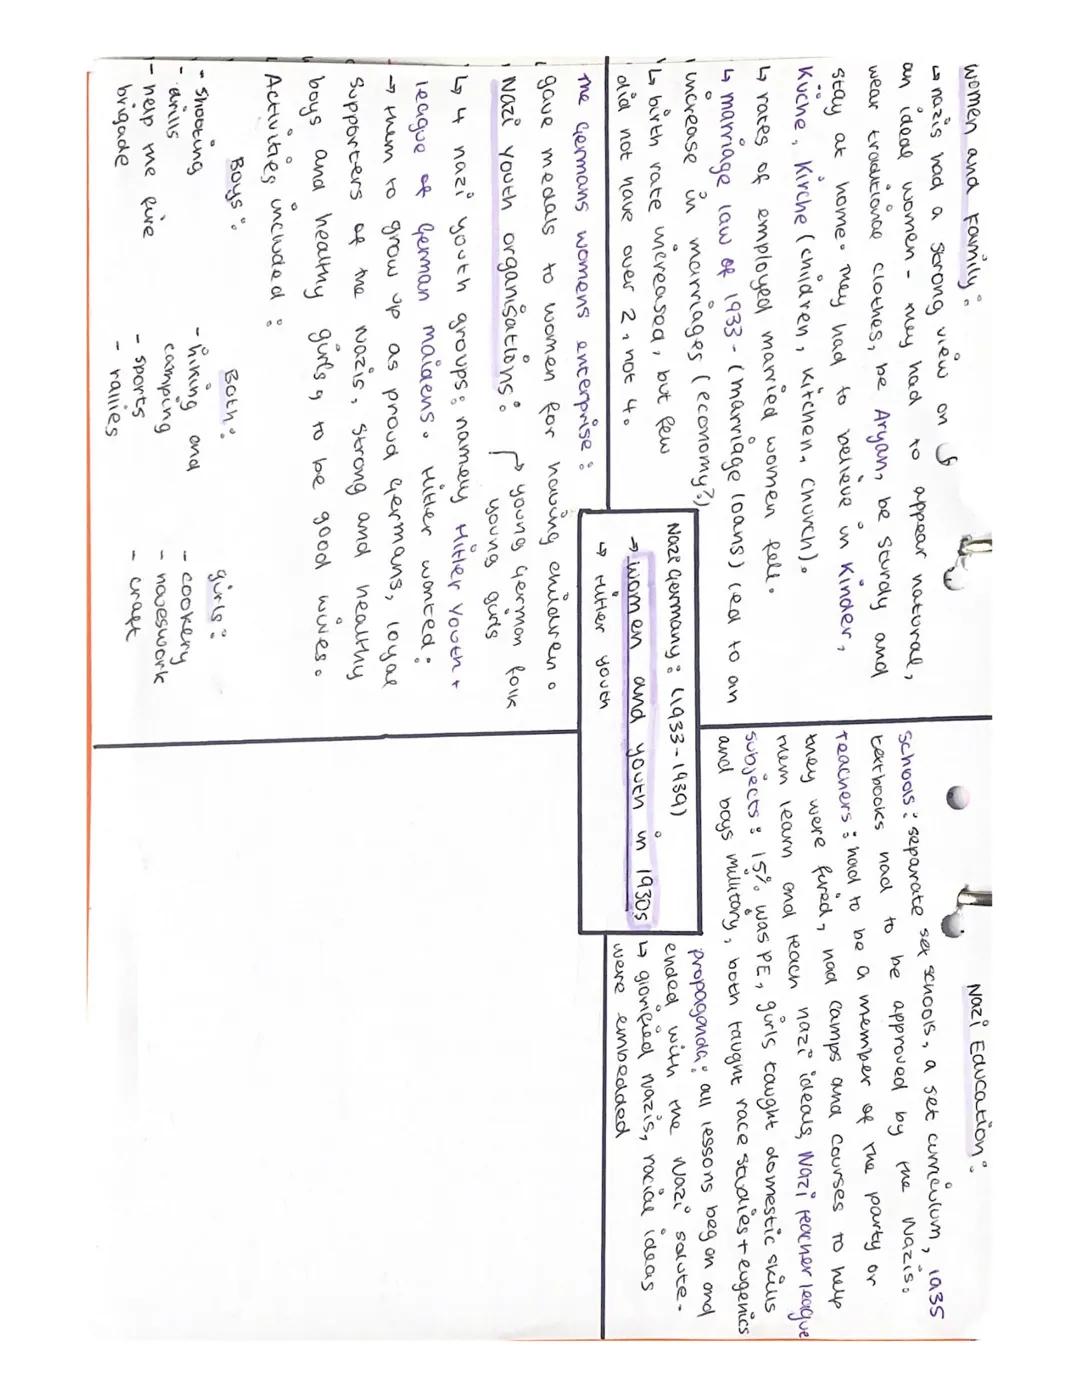 women and Family:
↳ nazis had a strong view on
an ideal women - they had to appear natural,
wear traditional clothes, be Aryan, be sturdy and
stay at home. They had to believe in Kinder,
Küche, Kirche (children, kitchen, church).
↳ rates of employed married women fell.
↳ marriage law of 1933 - (marriage loans) led to an
increase in marriages (economy?)
↳ birth rate increased, but few
did not have over 2, not 4.
The Germans womens enterprise:
gave medals to women for having children.
Nazi youth organisations:
→ young german folk
young girls
↳ 4 nazi youth groups: namely Hitler Youth +
league of German maidens. Hitler wanted:
→ them to grow up as proud germans, loyal
supporters of the nazis, strong and healthy
boys and healthy girls, to be good wives.
Activities included:
Boys:
- shooting
- drills
- help the fire
brigade
Both:
- hiking and
camping
- sports
- rallies
girls:
- cookery
- houeswork
- craft
Nazi Germany: (1933-1939)
→ women and youth in 1930s
↳ Hitler youth
Nazi Education:
Schools: separate sex schools, a set curriculum, 1935
textbooks had to be approved by the Nazis.
teachers: had to be a member of the party or
they were fired, had camps and courses to help
them learn and teach nazi ideals, Nazi teacher league
subjects: 15% was PE, girls taught domestic skills
and boys military, both taught race studies + eugenics
propaganda: all lessons began and
ended with the Nazi salute.
↳ glorified Nazis, racial ideas
were embedded